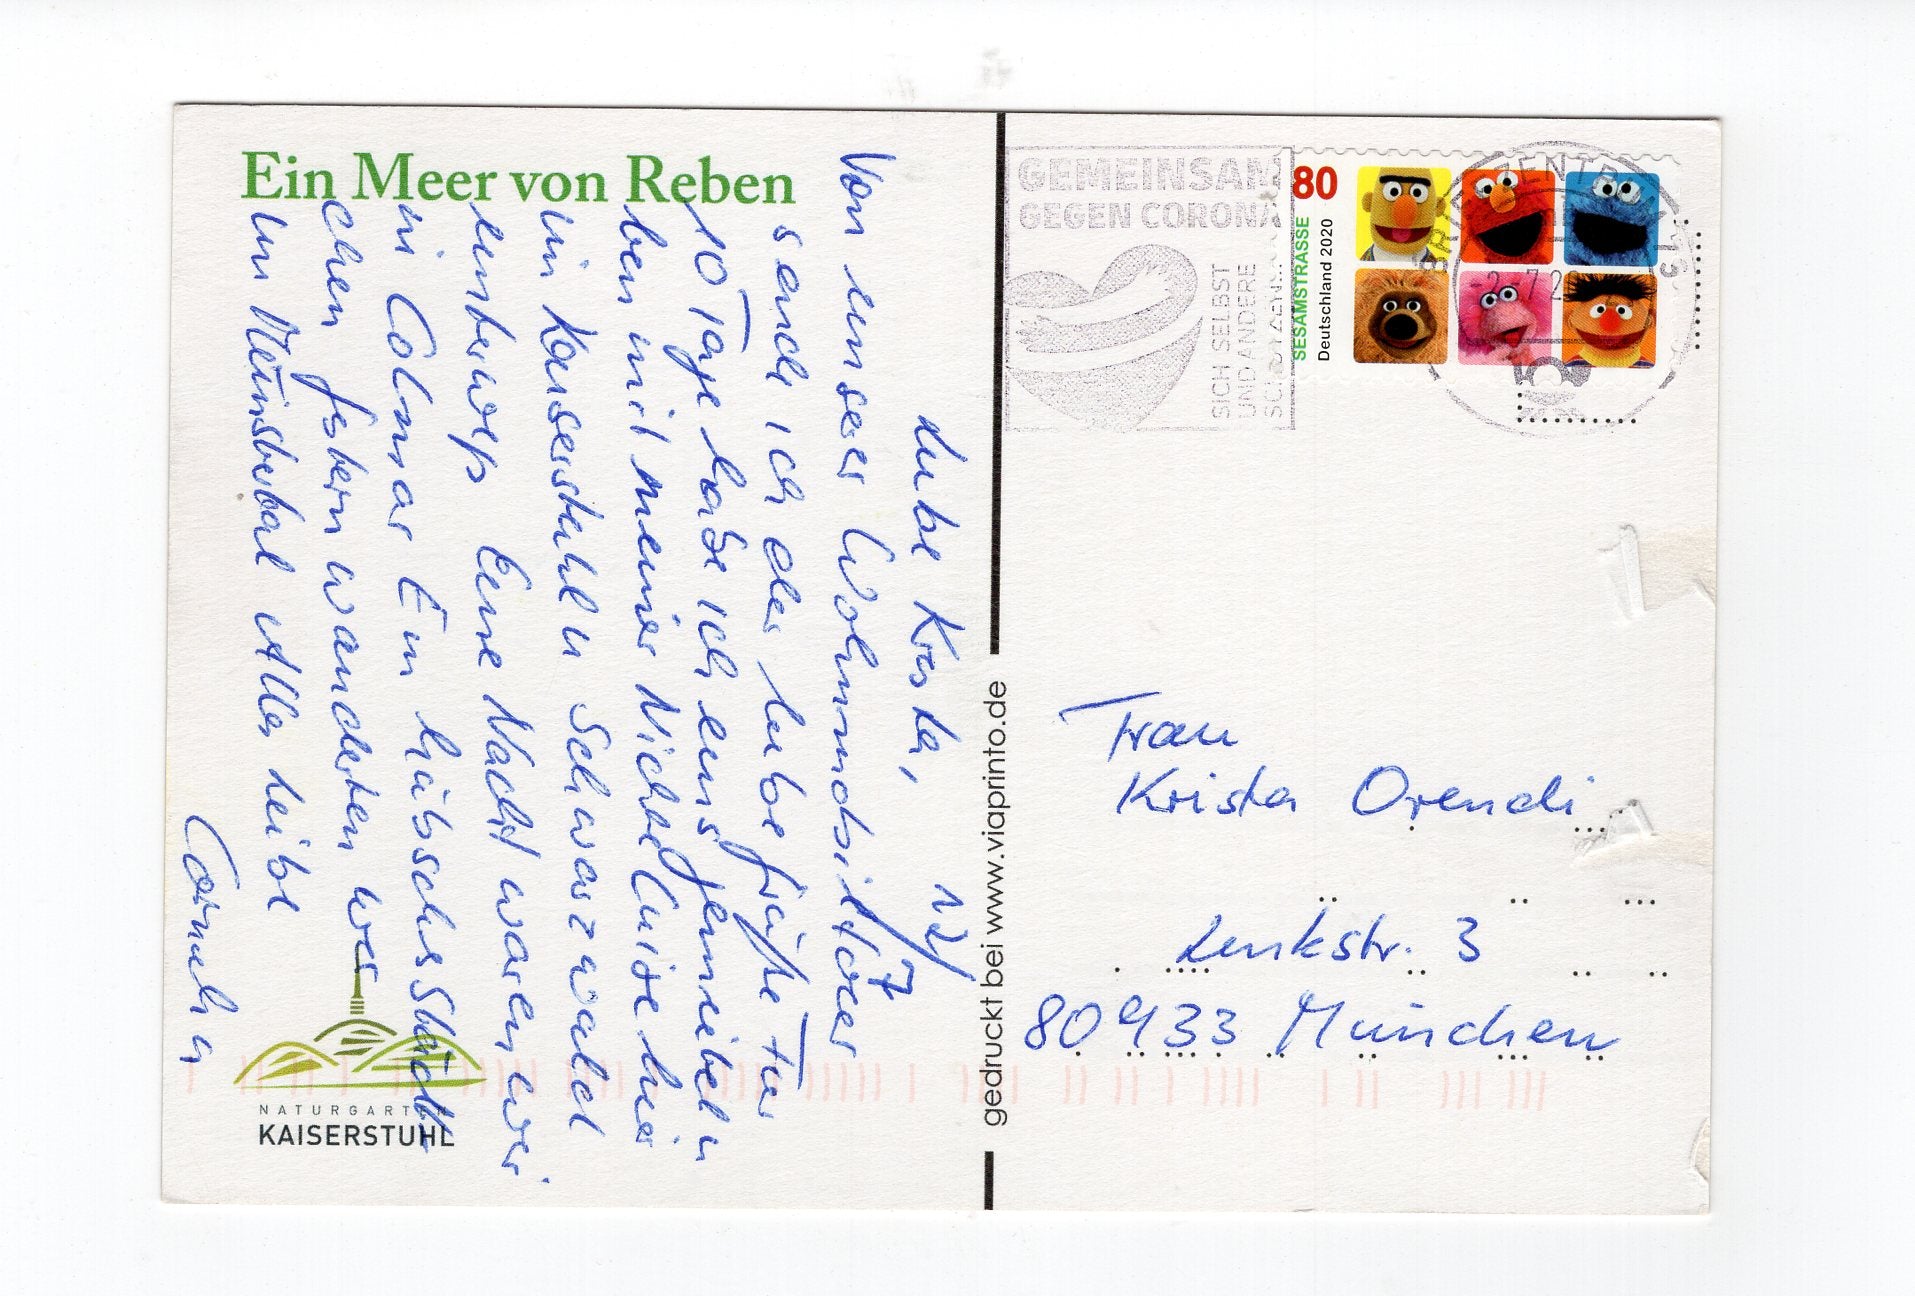 Ein Meer von Reben
12/7
Liebe Krista,
Von unser Wohnmobiltour
sende ich dir liebe Grüße Für
10 Tage habe ich eins gemietet u
bin mit meiner Nichte Luise hier
im Kaiserstuhl u Schwarzwald
unterwegs Eine Nacht waren wir
in Colmar Ein hübsches Städt-
chen gestern wanderten wir
im Münstertal Alles Liebe
Cornelia
NATURGARTEN
KAISERSTUHL
gedruckt bei www.viaprinto.de
GEMEINSAM
GEGEN CORONA
SICH SELBST
UND ANDERE
SCHÜTZEN
80
SESAMSTRASSE
Deutschland 2020
BRIEFZENTRUM
Frau
Krista Orendi
Lenkstr. 3
80933 München